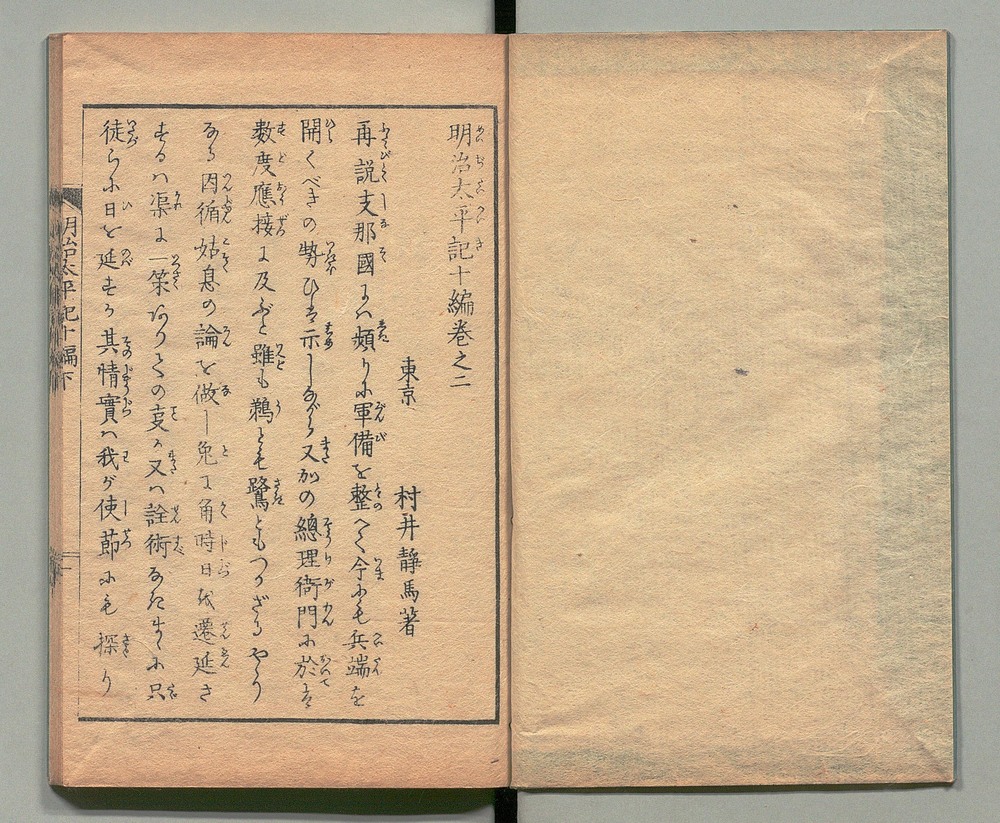 明治太平記十編巻之二
東京 村井靜馬著
再説支那國にハ頻りに軍備を整へて今にも兵端を
開くべきの勢ひを示しながら又かの總理衙門に於て
数度應接に及ぶと雖も鵜とも鷺ともつかざるやう
なる因循姑息の論を做し兎に角時日を遷延さ
するハ渠に一策ありての支か又ハ詮術なきまゝに只
徒らに日を延するか其情實ハ我が使節にも探り
明治太平記十編下
一